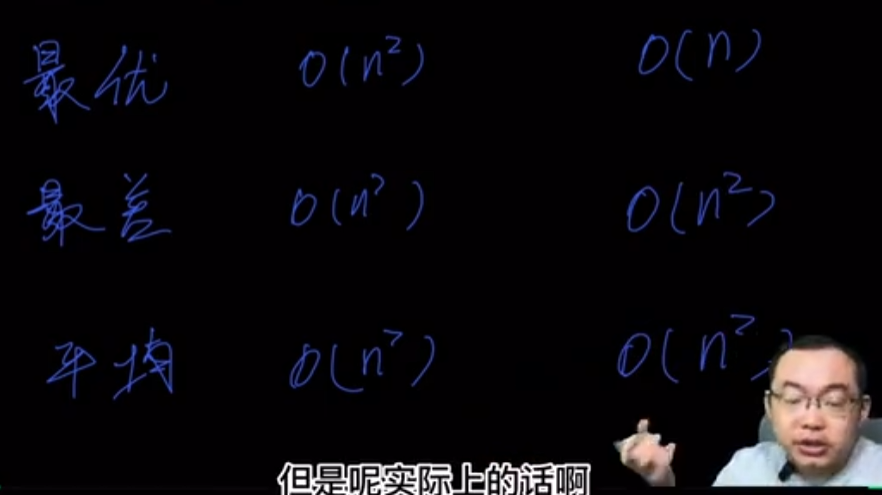 最优 O(n²) O(n)
最差 O(n²) O(n²)
平均 O(n²) O(n²)
但是呢实际上的话啊